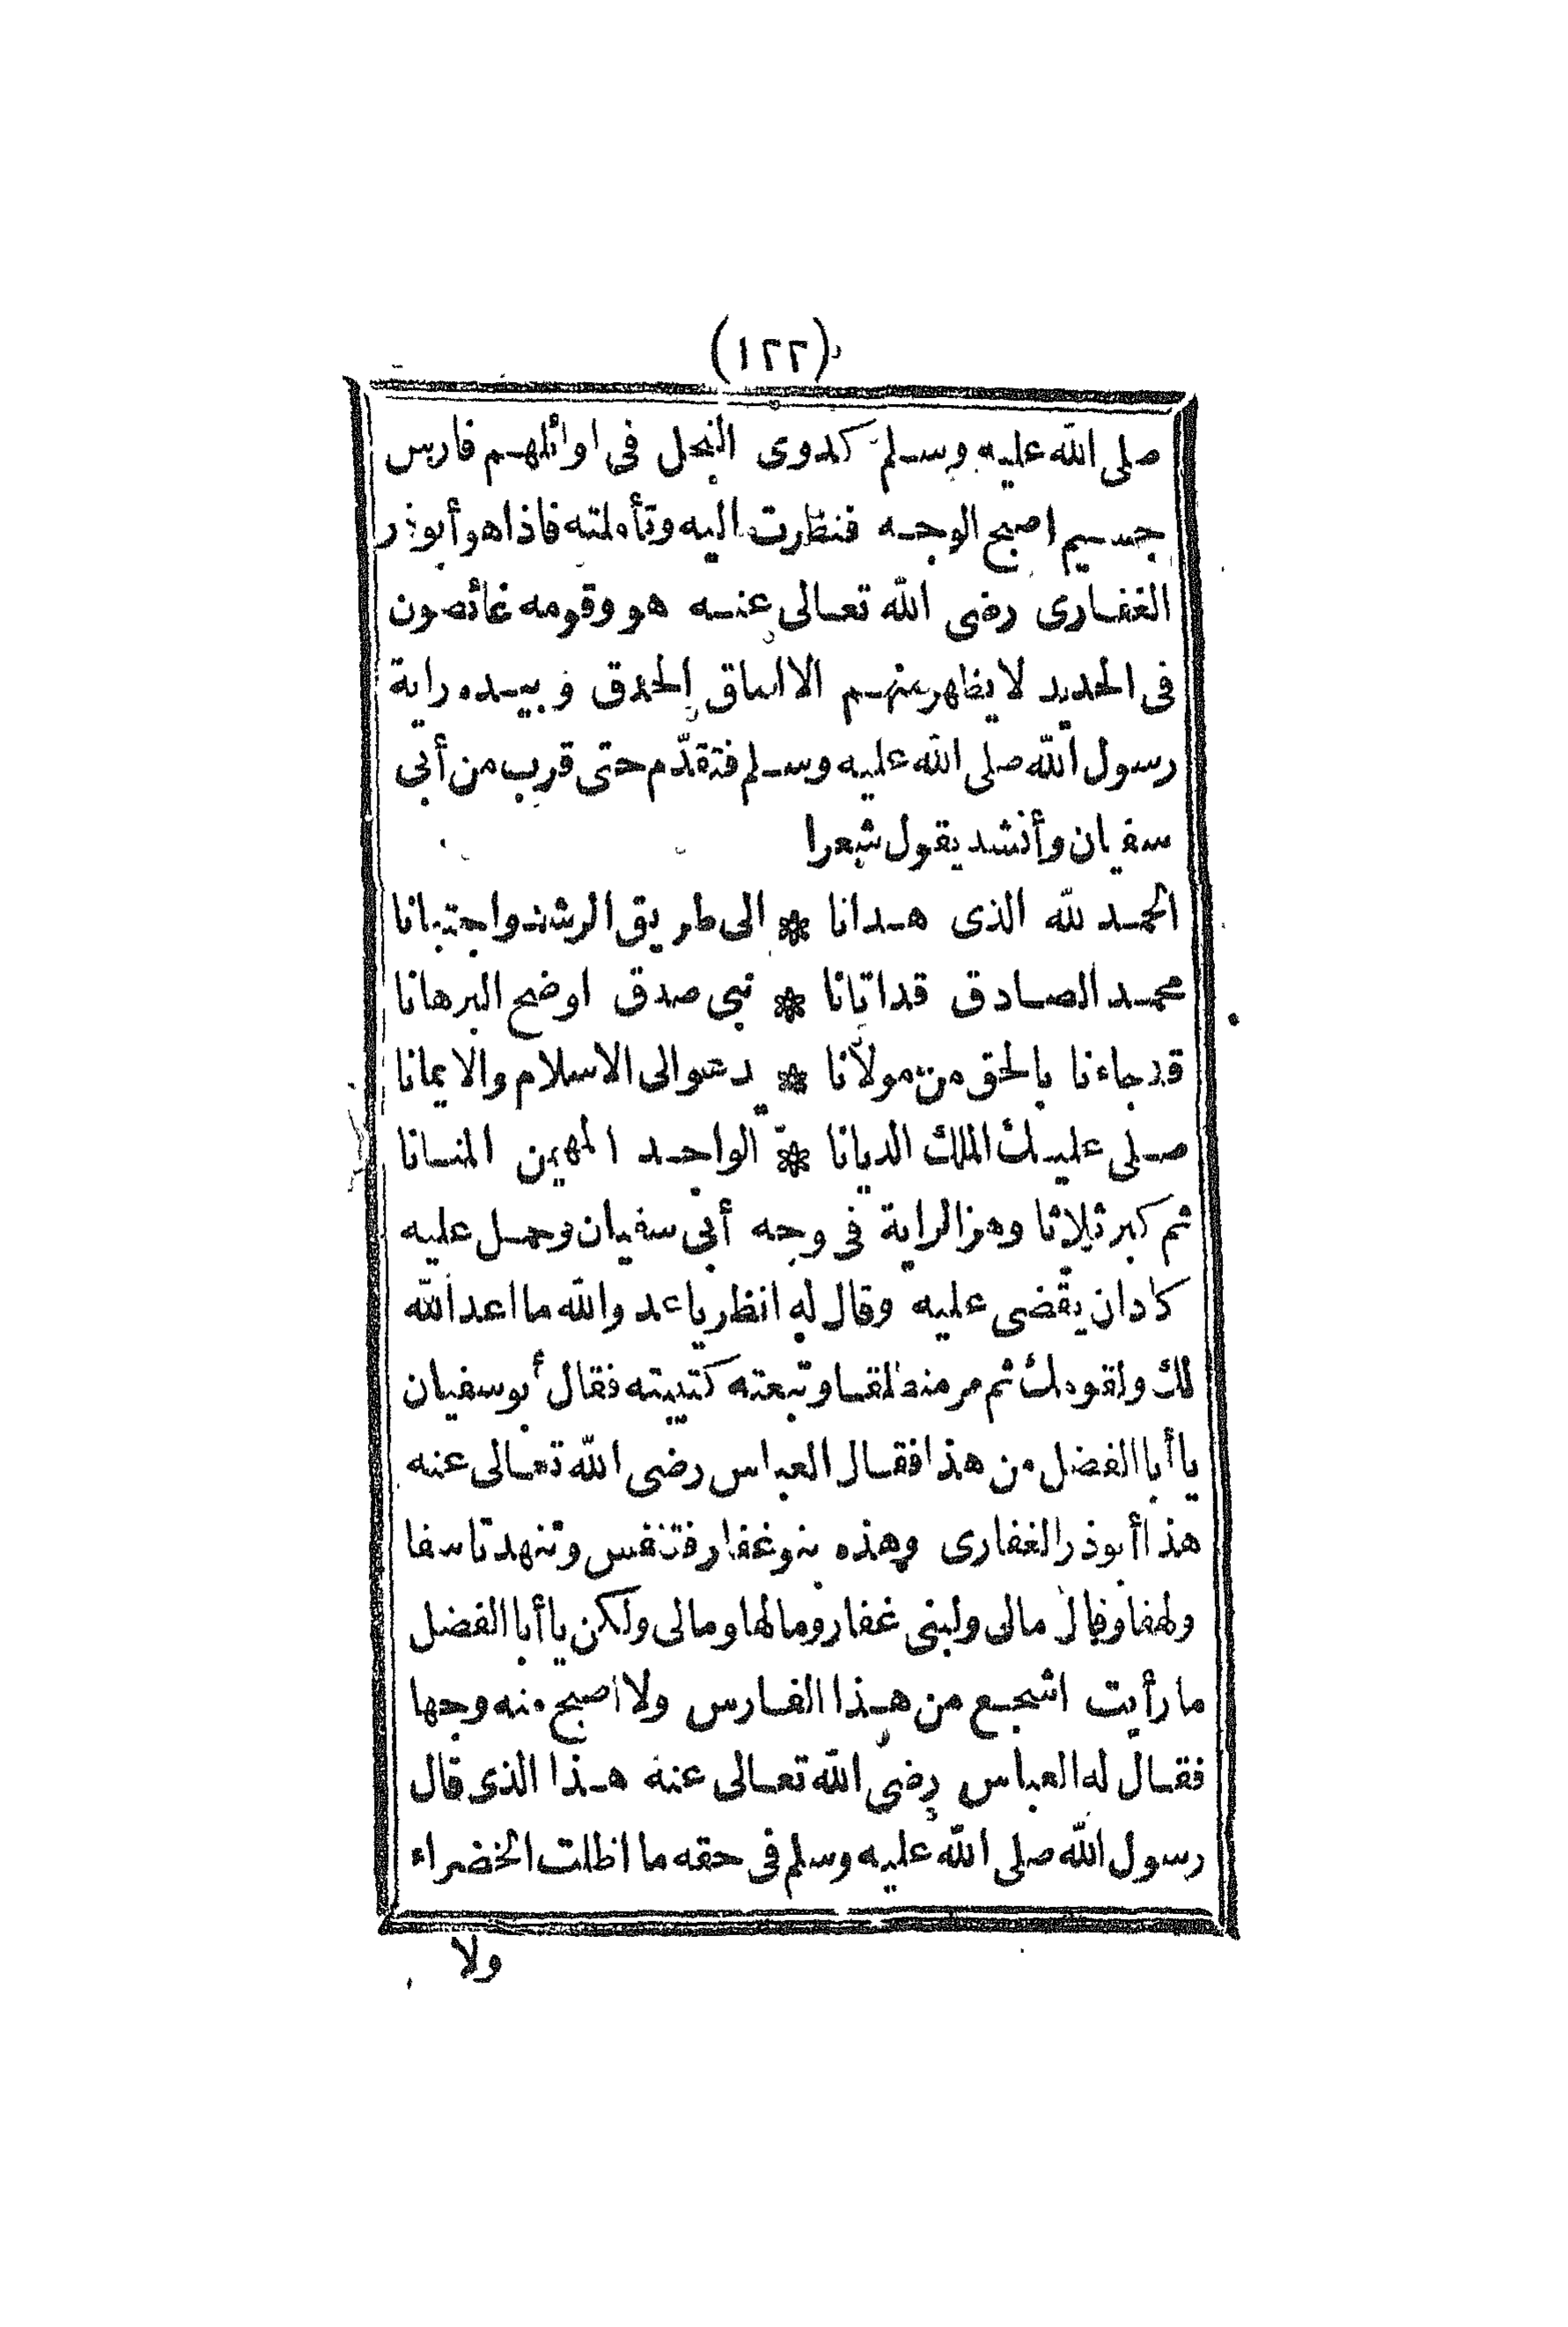 (١٢٢)
صلى الله عليه وسلم كدوى النحل فى اوائلهم فارس
جسيم اصبح الوجه فنظرت اليه وتأملته فاذا هو أبو ذر
الغفارى رضى الله تعالى عنه هو وقومه غائصون
فى الحديد لا يظهر منهم الا اماق الحدق وبيده راية
رسول الله صلى الله عليه وسلم فتقدّم حتى قرب من أبى
سفيان وأنشد يقول شعرا
الحمد لله الذى هدانا * الى طريق الرشد واجتبانا
محمد الصادق قد اتانا * نبى صدق اوضح البرهانا
قد جاءنا بالحق من مولانا * يدعو الى الاسلام والايمانا
صلى عليك الملك الديانا * الواحد المهيمن المنانا
ثم كبر ثلاثا وهز الراية فى وجه أبى سفيان وحمل عليه
كاد ان يقضى عليه وقال له انظر يا عد والله ما اعد الله
لك ولقومك ثم مر منطلقا وتبعته كتيبته فقال أبو سفيان
يا أبا الفضل من هذا فقال العباس رضى الله تعالى عنه
هذا أبوذر الغفارى وهذه بنو غفار فتنفس وتنهد تاسفا
ولهفا وقال مالى ولبنى غفار ومالها ومالى ولكن يا أبا الفضل
ما رأيت اشجع من هذا الفارس ولا اصبح منه وجها
فقال له العباس رضى الله تعالى عنه هذا الذى قال
رسول الله صلى الله عليه وسلم فى حقه ما اظلت الخضراء
ولا